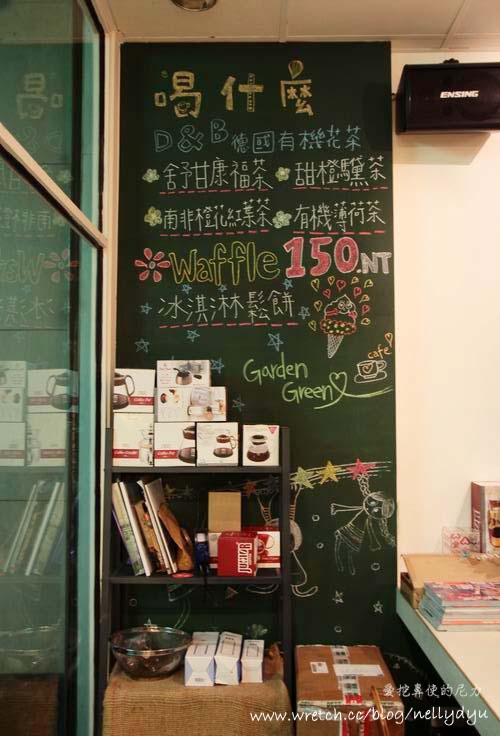 喝什麼
D&B 德國有機花茶
舒予甘康福茶 甜橙騷茶
南非橙花紅葉茶 有機薄荷茶
Waffle 150.NT
冰淇淋鬆餅
cafe
Garden
Green
ENSING
愛挖鼻使的尼力
www.wretch.cc/blog/nellydyu